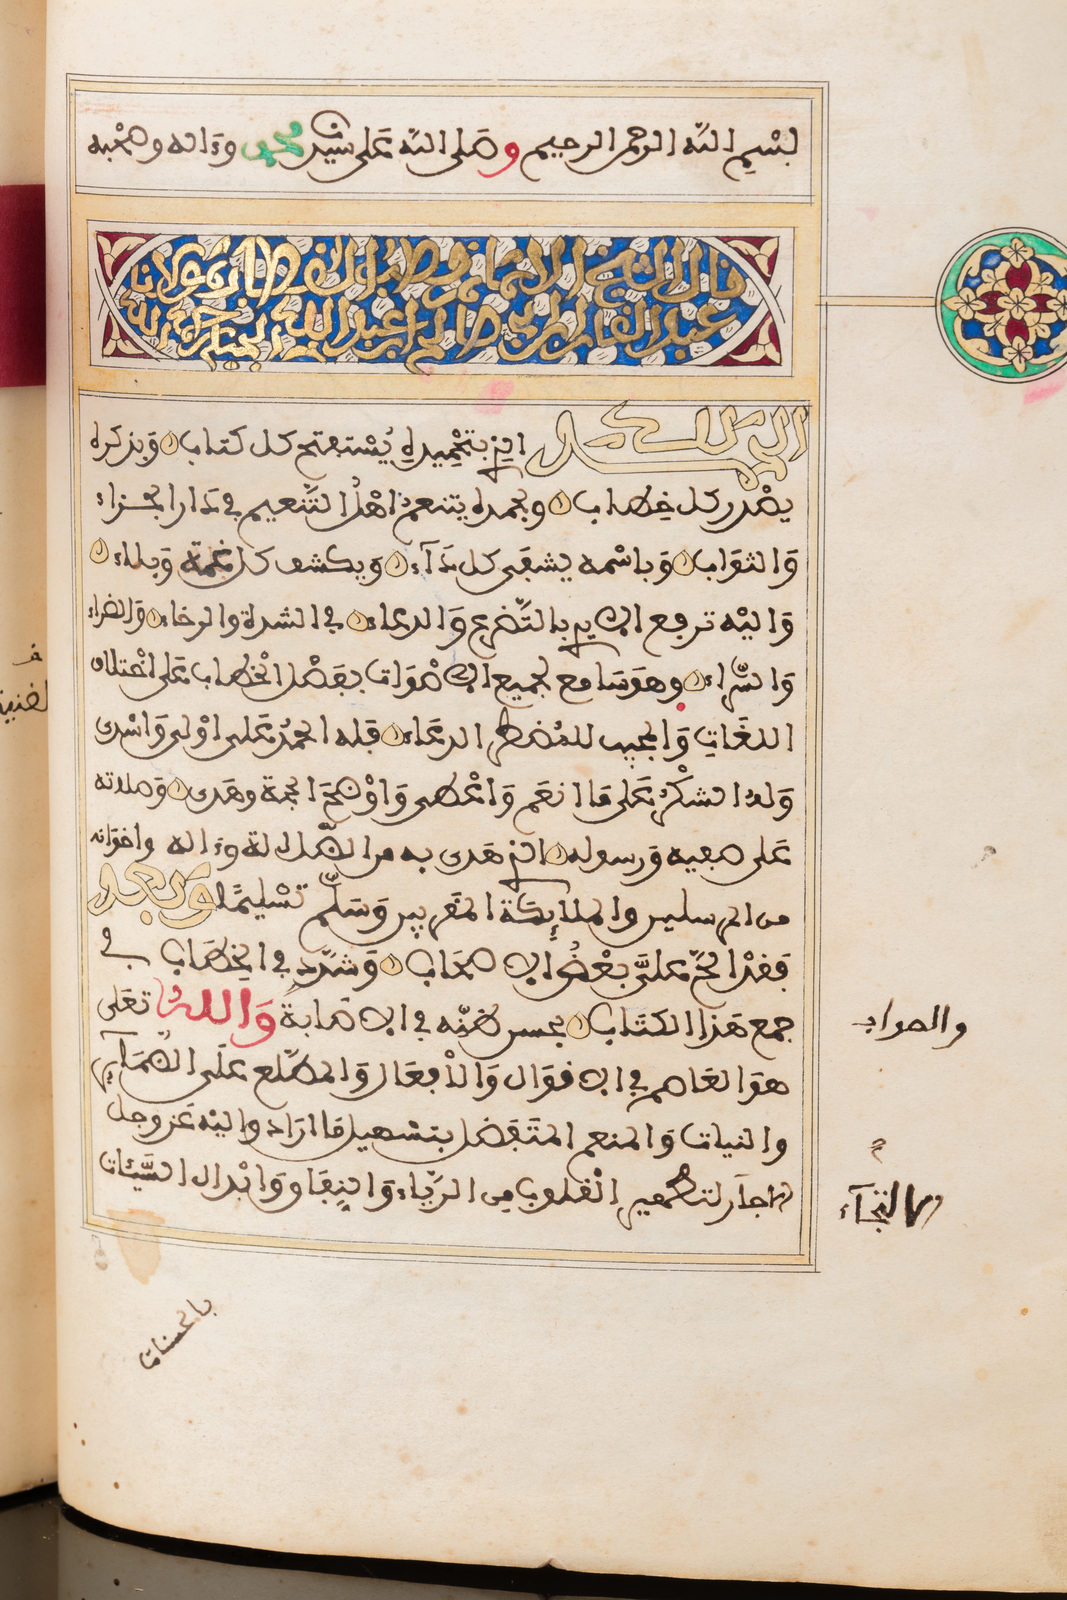 بسم الله الرحمن الرحيم وصلى الله على سيدنا محمد وءاله وصحبه
قال الشيخ الامام قطب الاقطاب مولانا
عبد القادر بن ابي صالح بن عبد الله الجيلي رحمه الله
الحمد لله الذي بتحميده يستفتح كل كتاب وبذكره
يصدر كل خطاب وبحمده يتنعم اهل التنعيم في دار الجزاء
والثواب وباسمه يشفى كل داء ويكشف كل غمة وبلاء
واليه ترفع الايدي بالتضرع والدعاء في الشدة والرخاء والضراء
والسراء وهو سامع لجميع الاصوات بفضل الخطاب على اختلاف
اللغات والمجيب للمضطر الدعاء فله الحمد على اولى واسدى
وله الشكر على ما انعم واعطى واوضح المحجة وهدى وصلاته
على صفيه ورسوله الذي هدى به من الضلالة وءاله واخوانه
من المرسلين والملائكة المقربين وسلم تسليما وبعد
فقد الح علي بعض الاصحاب وشدد في الخطاب في
جمع هذا الكتاب بحسن ظنه في الاصابة والله تعلى
هو العاصم في الاقوال والافعال والمطلع على الضمائر
والنيات والمنعم المتفضل بتسهيل ما اراد واليه عز وجل
لتطهير القلوب من الرياء والنفاق وابدال السيئات
والصواب
الالتجاء
بالحسنات